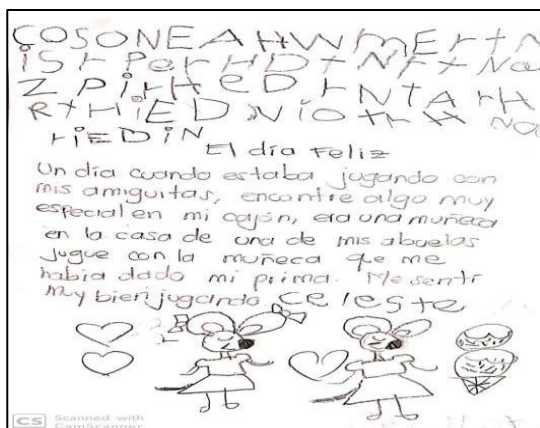 COSONEAHWMERTN
iSrPerHDTNFTNa
ZPirHeDrNTArH
RTHiEDNiOTrANa
riEDiN
El día Feliz
Un día cuando estaba jugando con
mis amiguitas, encontre algo muy
especial en mi cajón, era una muñeca
en la casa de una de mis abuelas
jugue con la muñeca que me
habia dado mi prima. Me sentí
muy bien jugando celeste
CS Scanned with
CamScanner